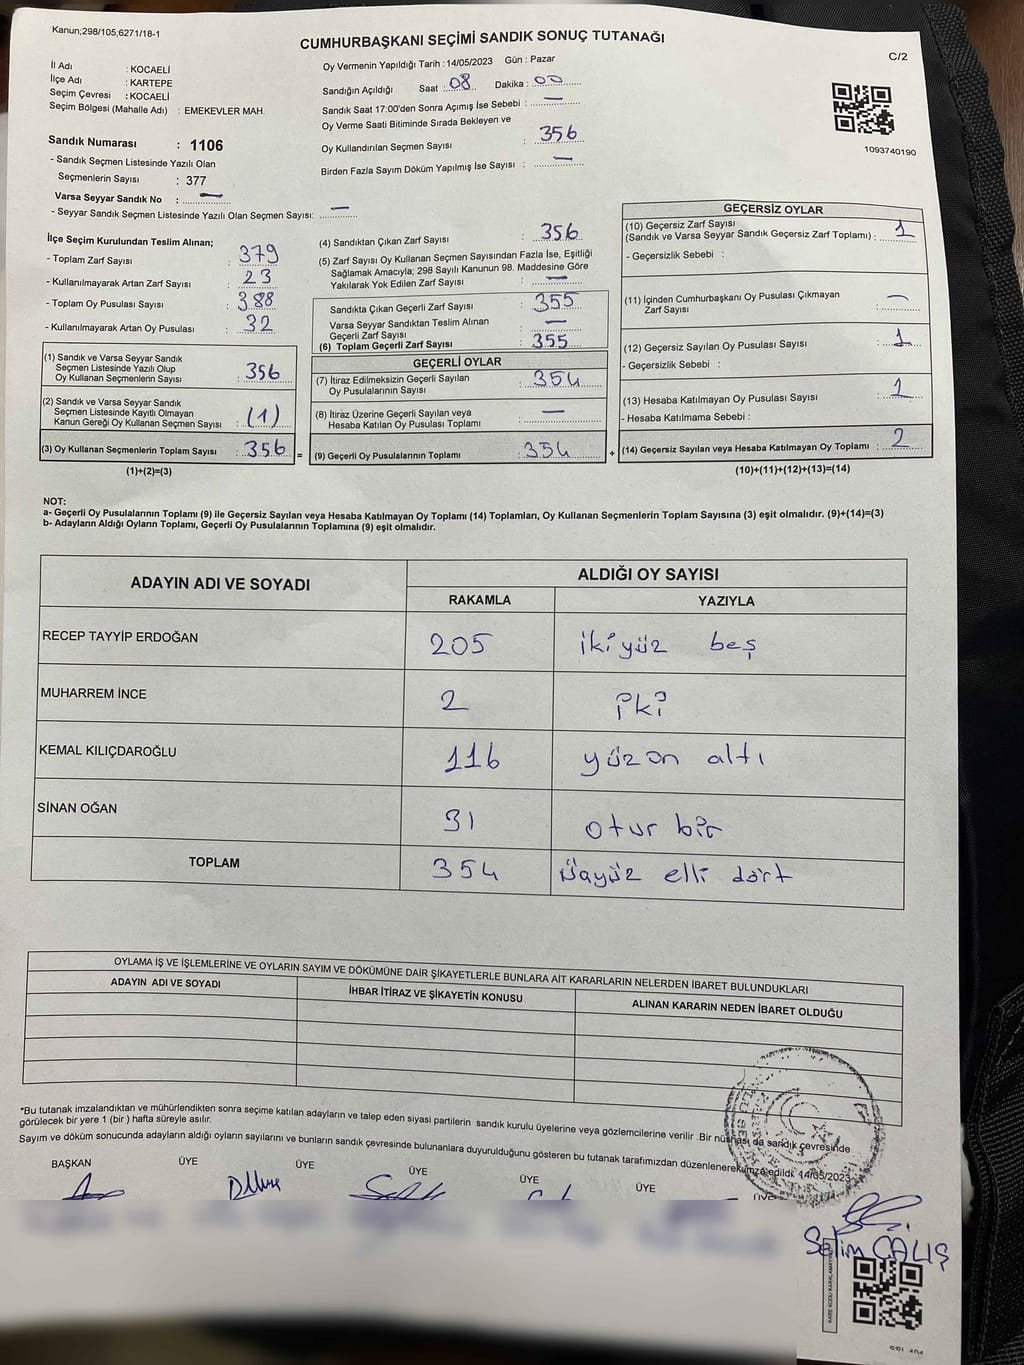 Kanun;298/105;6271/18-1
CUMHURBAŞKANI SEÇİMİ SANDIK SONUÇ TUTANAĞI
C/2
İl Adı : KOCAELİ
İlçe Adı : KARTEPE
Seçim Çevresi : KOCAELİ
Seçim Bölgesi (Mahalle Adı) : EMEKEVLER MAH.
Oy Vermenin Yapıldığı Tarih : 14/05/2023 Gün : Pazar
Sandığın Açıldığı Saat : 08 Dakika : 00
Sandık Saat 17:00'den Sonra Açımış İse Sebebi : —
Oy Verme Saati Bitiminde Sırada Bekleyen ve
Oy Kullandırılan Seçmen Sayısı : 356
Birden Fazla Sayım Döküm Yapılmış İse Sayısı : —
1093740190
Sandık Numarası : 1106
- Sandık Seçmen Listesinde Yazılı Olan
Seçmenlerin Sayısı : 377
Varsa Seyyar Sandık No : —
- Seyyar Sandık Seçmen Listesinde Yazılı Olan Seçmen Sayısı: —
İlçe Seçim Kurulundan Teslim Alınan;
- Toplam Zarf Sayısı : 379
- Kullanılmayarak Artan Zarf Sayısı : 23
- Toplam Oy Pusulası Sayısı : 388
- Kullanılmayarak Artan Oy Pusulası : 32
(1) Sandık ve Varsa Seyyar Sandık
Seçmen Listesinde Yazılı Olup
Oy Kullanan Seçmenlerin Sayısı : 356
(2) Sandık ve Varsa Seyyar Sandık
Seçmen Listesinde Kayıtlı Olmayan
Kanun Gereği Oy Kullanan Seçmen Sayısı : (1)
(3) Oy Kullanan Seçmenlerin Toplam Sayısı : 356 =
(1)+(2)=(3)
(4) Sandıktan Çıkan Zarf Sayısı : 356
(5) Zarf Sayısı Oy Kullanan Seçmen Sayısından Fazla İse, Eşitliği
Sağlamak Amacıyla; 298 Sayılı Kanunun 98. Maddesine Göre
Yakılarak Yok Edilen Zarf Sayısı : —
Sandıkta Çıkan Geçerli Zarf Sayısı : 355
Varsa Seyyar Sandıktan Teslim Alınan
Geçerli Zarf Sayısı : —
(6) Toplam Geçerli Zarf Sayısı : 355
GEÇERLİ OYLAR
(7) İtiraz Edilmeksizin Geçerli Sayılan
Oy Pusulalarının Sayısı : 354
(8) İtiraz Üzerine Geçerli Sayılan veya
Hesaba Katılan Oy Pusulaları Toplamı : —
(9) Geçerli Oy Pusulalarının Toplamı : 354 +
GEÇERSİZ OYLAR
(10) Geçersiz Zarf Sayısı
(Sandık ve Varsa Seyyar Sandık Geçersiz Zarf Toplamı) : 1
- Geçersizlik Sebebi :
(11) İçinden Cumhurbaşkanı Oy Pusulası Çıkmayan
Zarf Sayısı : —
(12) Geçersiz Sayılan Oy Pusulası Sayısı : 1
- Geçersizlik Sebebi :
(13) Hesaba Katılmayan Oy Pusulası Sayısı 1
- Hesaba Katılmama Sebebi :
(14) Geçersiz Sayılan veya Hesaba Katılmayan Oy Toplamı : 2
(10)+(11)+(12)+(13)=(14)
NOT:
a- Geçerli Oy Pusulalarının Toplamı (9) ile Geçersiz Sayılan veya Hesaba Katılmayan Oy Toplamı (14) Toplamları, Oy Kullanan Seçmenlerin Toplam Sayısına (3) eşit olmalıdır. (9)+(14)=(3)
b- Adayların Aldığı Oyların Toplamı, Geçerli Oy Pusulalarının Toplamına (9) eşit olmalıdır.
ADAYIN ADI VE SOYADI ALDIĞI OY SAYISI
RAKAMLA YAZIYLA
RECEP TAYYİP ERDOĞAN 205 ikiyüz beş
MUHARREM İNCE 2 iki
KEMAL KILIÇDAROĞLU 116 yüzon altı
SİNAN OĞAN 31 otuz bir
TOPLAM 354 üçyüz elli dört
OYLAMA İŞ VE İŞLEMLERİNE VE OYLARIN SAYIM VE DÖKÜMÜNE DAİR ŞİKAYETLERLE BUNLARA AİT KARARLARIN NELERDEN İBARET BULUNDUKLARI
ADAYIN ADI VE SOYADI İHBAR İTİRAZ VE ŞİKAYETİN KONUSU ALINAN KARARIN NEDEN İBARET OLDUĞU
*Bu tutanak imzalandıktan ve mühürlendikten sonra seçime katılan adayların ve talep eden siyasi partilerin sandık kurulu üyelerine veya gözlemcilerine verilir .Bir nüshası da sandık çevresinde
görülecek bir yere 1 (bir ) hafta süreyle asılır.
Sayım ve döküm sonucunda adayların aldığı oyların sayılarını ve bunların sandık çevresinde bulunanlara duyurulduğunu gösteren bu tutanak tarafımızdan düzenlenerek imza edildi. 14/05/2023
BAŞKAN ÜYE ÜYE ÜYE ÜYE ÜYE ÜYE
Selim ÇALIŞ